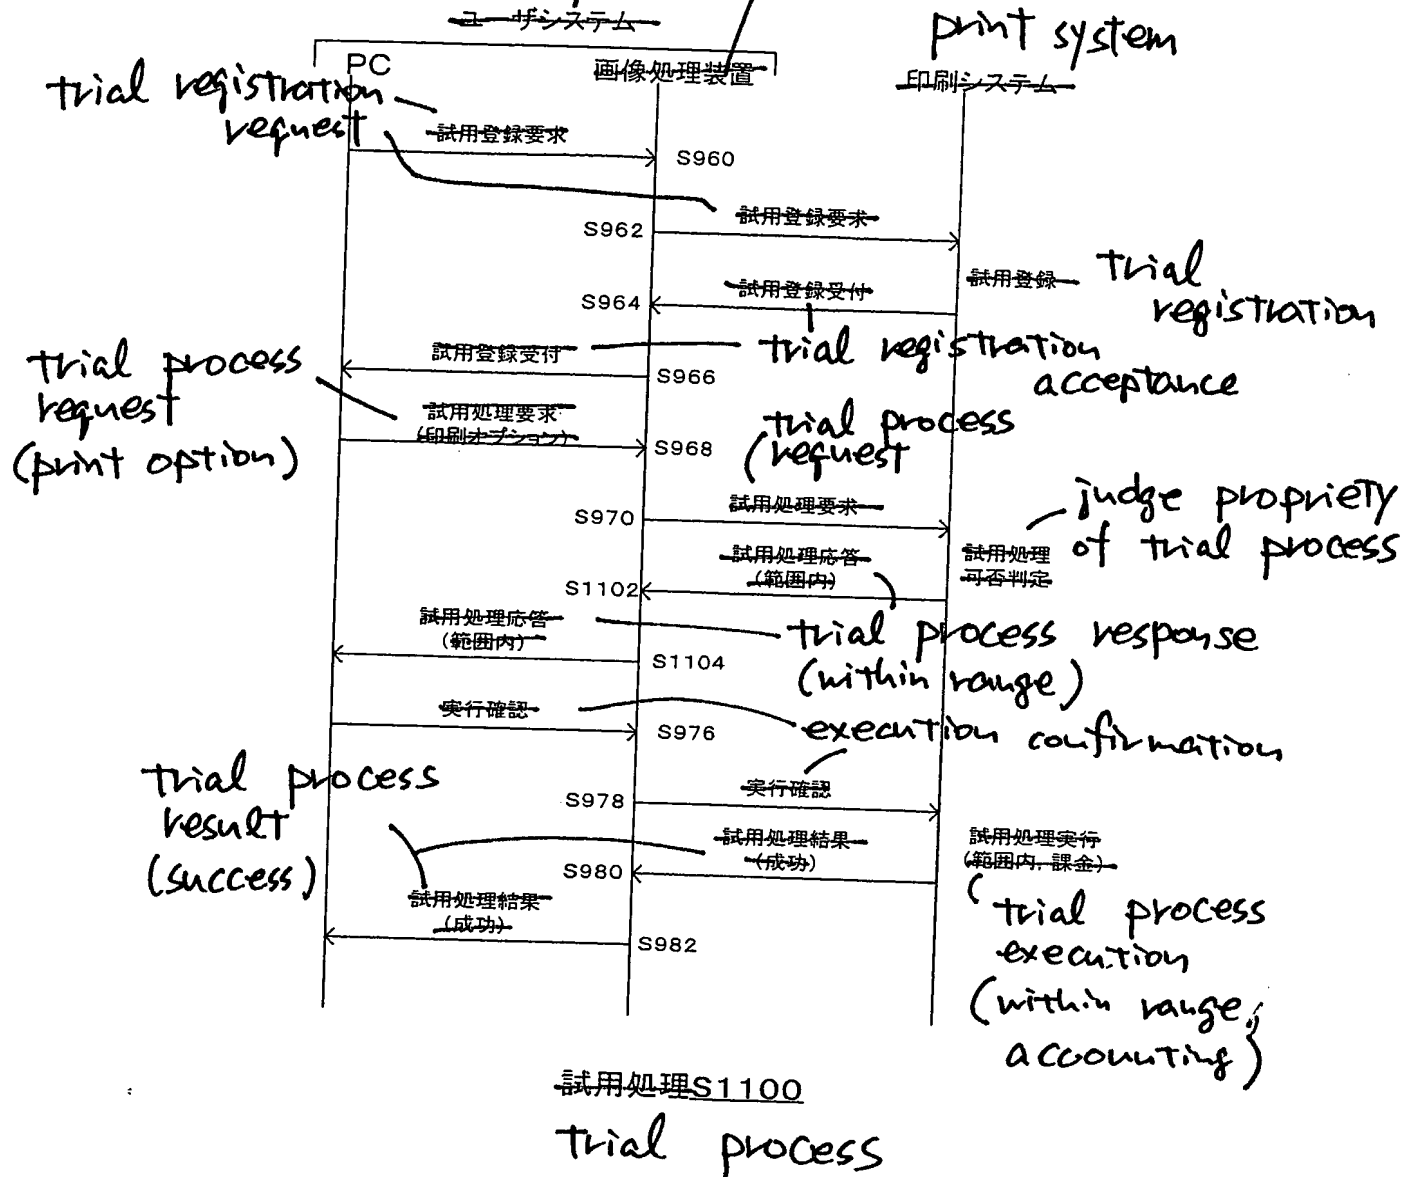 ユーザシステム
print system
PC
画像処理装置
印刷システム
trial registration
request
試用登録要求
S960
試用登録要求
S962
試用登録
trial
registration
試用登録受付
S964
試用登録受付
trial registration
acceptance
S966
trial process
request
(print option)
試用処理要求
(印刷オプション)
S968
trial process
request
試用処理要求
S970
judge propriety
of trial process
試用処理
可否判定
試用処理応答
(範囲内)
S1102
試用処理応答
(範囲内)
S1104
trial process response
(within range)
実行確認
S976
execution confirmation
実行確認
S978
trial process
result
(success)
試用処理結果
(成功)
S980
試用処理実行
(範囲内, 課金)
試用処理結果
(成功)
S982
trial process
execution
(within range,
accounting)
試用処理S1100
trial process